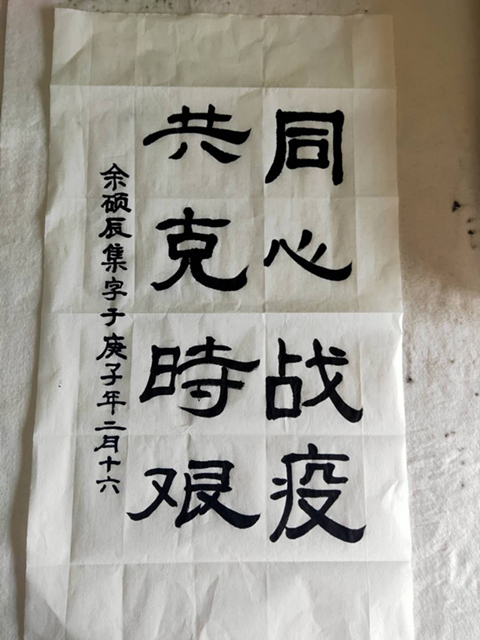 同心战疫
共克時艰
余硕辰集字于庚子年二月十六